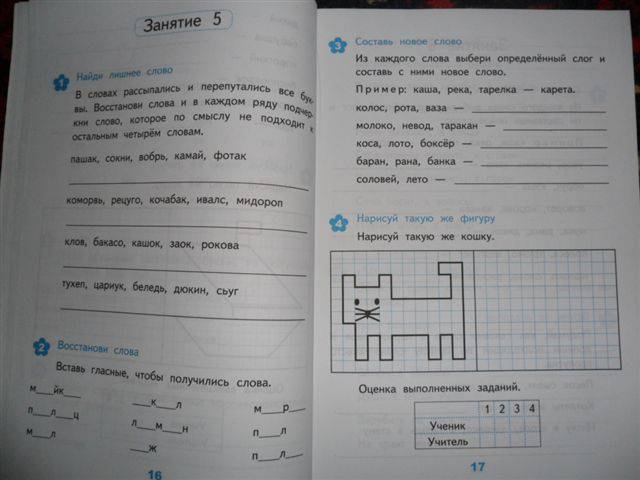 Занятие 5
1 Найди лишнее слово
В словах рассыпались и перепутались все бук-
вы. Восстанови слова и в каждом ряду подчер-
кни слово, которое по смыслу не подходит к
остальным четырём словам.
пашак, сокни, вобрь, камай, фотак
коморвь, рецуго, кочабак, ивалс, мидороп
клов, бакасо, кашок, заок, рокова
тухеп, цариук, беледь, дюкин, сьуг
2 Восстанови слова
Вставь гласные, чтобы получились слова.
м___йк___ ___к___л м___р___
п___л___ц л___м___н п___л
м___л ___ж п___л___
16
3 Составь новое слово
Из каждого слова выбери определённый слог и
составь с ними новое слово.
Пример: каша, река, тарелка — карета.
колос, рота, ваза —
молоко, невод, таракан —
коса, лото, боксёр —
баран, рана, банка —
соловей, лето —
4 Нарисуй такую же фигуру
Нарисуй такую же кошку.
Оценка выполненных заданий.
1 2 3 4
Ученик
Учитель
17